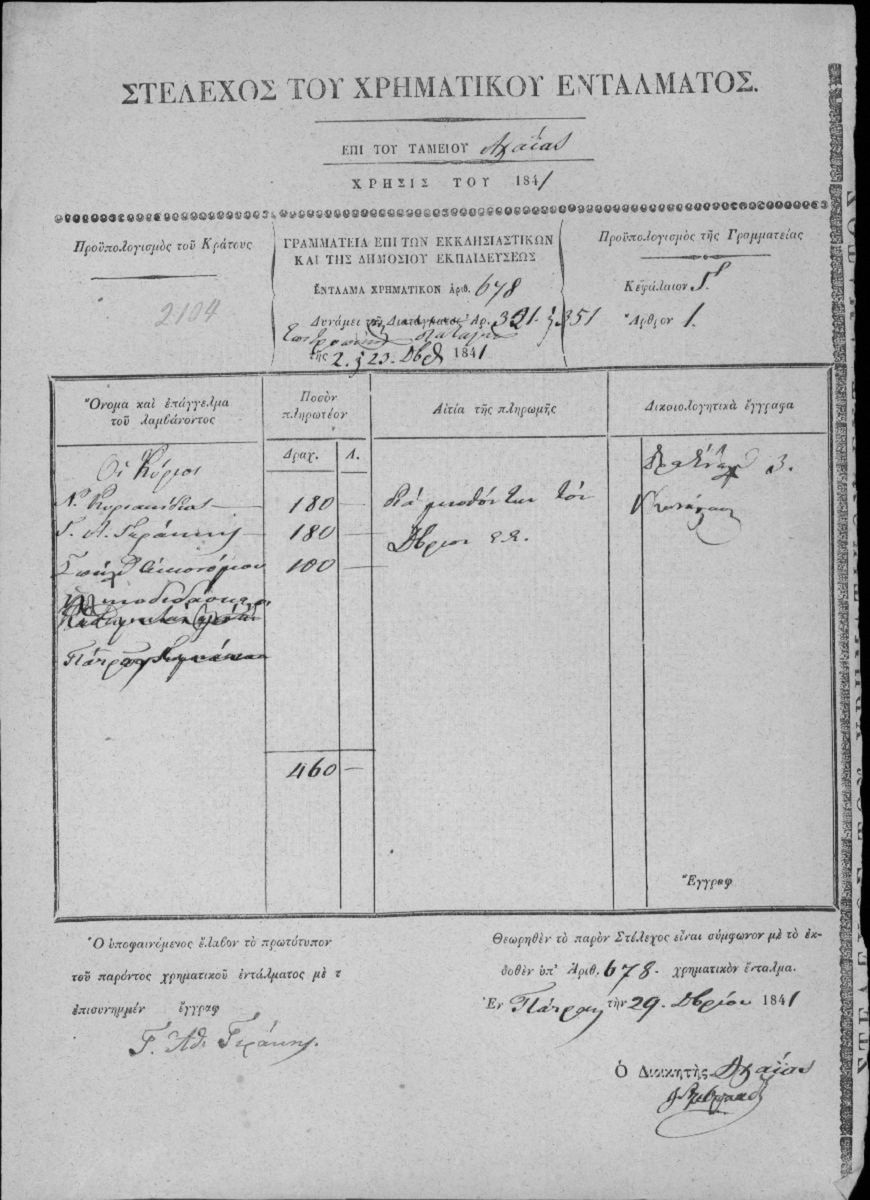 ΣΤΕΛΕΧΟΣ ΤΟΥ ΧΡΗΜΑΤΙΚΟΥ ΕΝΤΑΛΜΑΤΟΣ.
ΕΠΙ ΤΟΥ ΤΑΜΕΙΟΥ Αχαΐας
ΧΡΗΣΙΣ ΤΟΥ 1841
Προϋπολογισμὸς τοῦ Κράτους
2104
ΓΡΑΜΜΑΤΕΙΑ ΕΠΙ ΤΩΝ ΕΚΚΛΗΣΙΑΣΤΙΚΩΝ
ΚΑΙ ΤΗΣ ΔΗΜΟΣΙΟΥ ΕΚΠΑΙΔΕΥΣΕΩΣ
ΕΝΤΑΛΜΑ ΧΡΗΜΑΤΙΚΟΝ ἀριθ. 678
Δυνάμει τοῦ Διατάγματος Ἀρ. 321. 351
τῆς 2. 23. 1841
Προϋπολογισμὸς τῆς Γραμματείας
Κεφάλαιον Γ
Ἄρθρον 1.
Ὄνομα καὶ ἐπάγγελμα
τοῦ λαμβάνοντος
Ποσὸν
πληρωτέον
Αἰτία τῆς πληρωμῆς
Δικαιολογητικὰ ἔγγραφα
Δραχ. Λ.
Οἱ Κύριοι
3.
180 — διὰ μισθόν των τὸν
Γ. Α. Γεράκης — 180 —
Οικονόμου 100 —
460 —
Ἔγγραφ
Ὁ ὑποφαινόμενος ἔλαβον τὸ πρωτότυπον
τοῦ παρόντος χρηματικοῦ ἐντάλματος μὲ τ
ἐπισυνημμέν ἔγγραφ
Γ. Ἀθ. Γεράκης.
Θεωρηθὲν τὸ παρὸν Στέλεχος εἶναι σύμφωνον μὲ τὸ ἐκ-
δοθὲν ὑπ' Ἀριθ. 678. χρηματικὸν ἔνταλμα.
Ἐν Πάτραις τὴν 29. Δβρίου 1841
Ὁ Διοικητὴς Ἀχαΐας